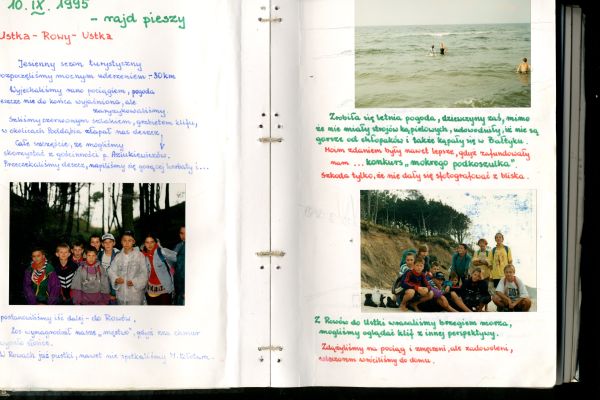 10.IX.1995
- rajd pieszy
Ustka - Rowy - Ustka
Jesienny sezon turystyczny
rozpoczęliśmy mocnym uderzeniem - 30km
Wyjechaliśmy rano pociągiem, pogoda
jeszcze nie do końca wyjaśniona, ale
zaryzykowaliśmy.
Szliśmy czerwonym szlakiem, grzbietem klifu,
w okolicach Poddąbia złapał nas deszcz,
Całe szczęście, że mogliśmy
skorzystać z gościnności p.
Przeczekaliśmy deszcz, napiliśmy się gorącej herbaty i...
postanowiliśmy iść dalej - do Rowów.
Los wynagrodził nasze „męstwo", gdyż zza chmur
wyszło słońce.
W Rowach już pustki, nawet nie spotkaliśmy
Zrobiła się letnia pogoda, dziewczyny zaś, mimo
że nie miały strojów kąpielowych, udowodniły, iż nie są
gorsze od chłopaków i także kąpały się w Bałtyku.
Moim zdaniem były nawet lepsze, gdyż zafundowały
nam ... konkurs „mokrego podkoszulka".
Szkoda tylko, że nie dały się sfotografować z bliska.
Z Rowów do Ustki wracaliśmy brzegiem morza,
mogliśmy oglądać klif z innej perspektywy.
Zdążyliśmy na pociąg i zmęczeni, ale zadowoleni,
wieczorem wróciliśmy do domu.